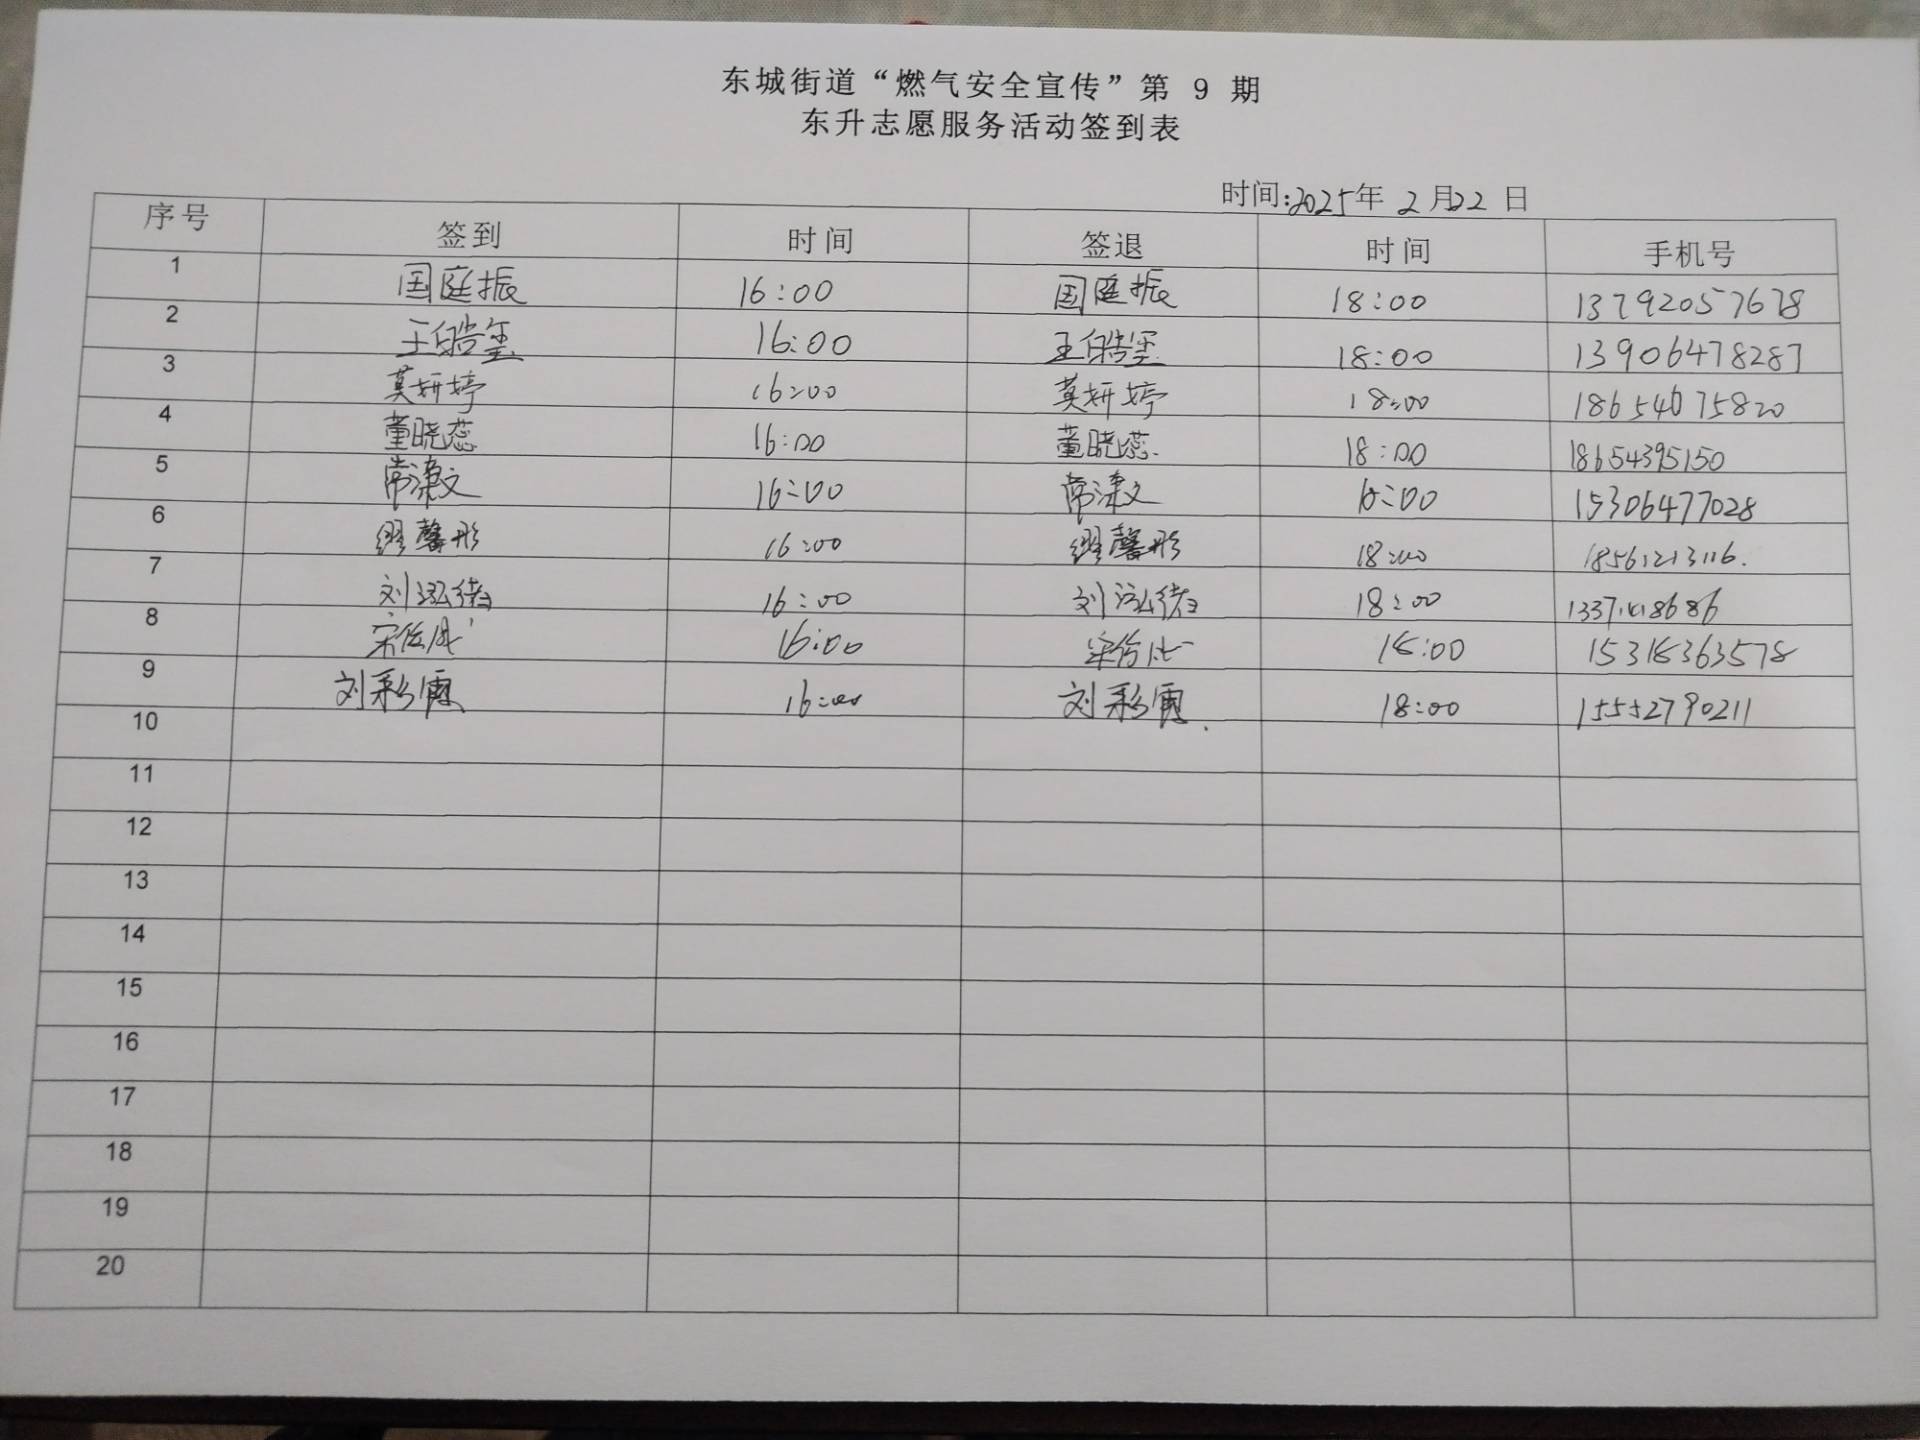 东城街道“燃气安全宣传”第 9 期
东升志愿服务活动签到表
时间:2025年 2月22 日
序号 签到 时间 签退 时间 手机号
1 国庭振 16:00 国庭振 18:00 13792057678
2 王皓玺 16:00 王皓玺 18:00 13906478287
3 莫妍婷 16:00 莫妍婷 18:00 18654075820
4 董晓蕊 16:00 董晓蕊. 18:00 18654395150
5 常潇文 16:00 常潇文 18:00 15306477028
6 缪馨彤 16:00 缪馨彤 18:00 18561213116.
7 刘泓绪 16:00 刘泓绪 18:00
8 16:00 18:00 15318363578
9 刘彩霞 16:00 刘彩霞. 18:00 15552790211
10
11
12
13
14
15
16
17
18
19
20